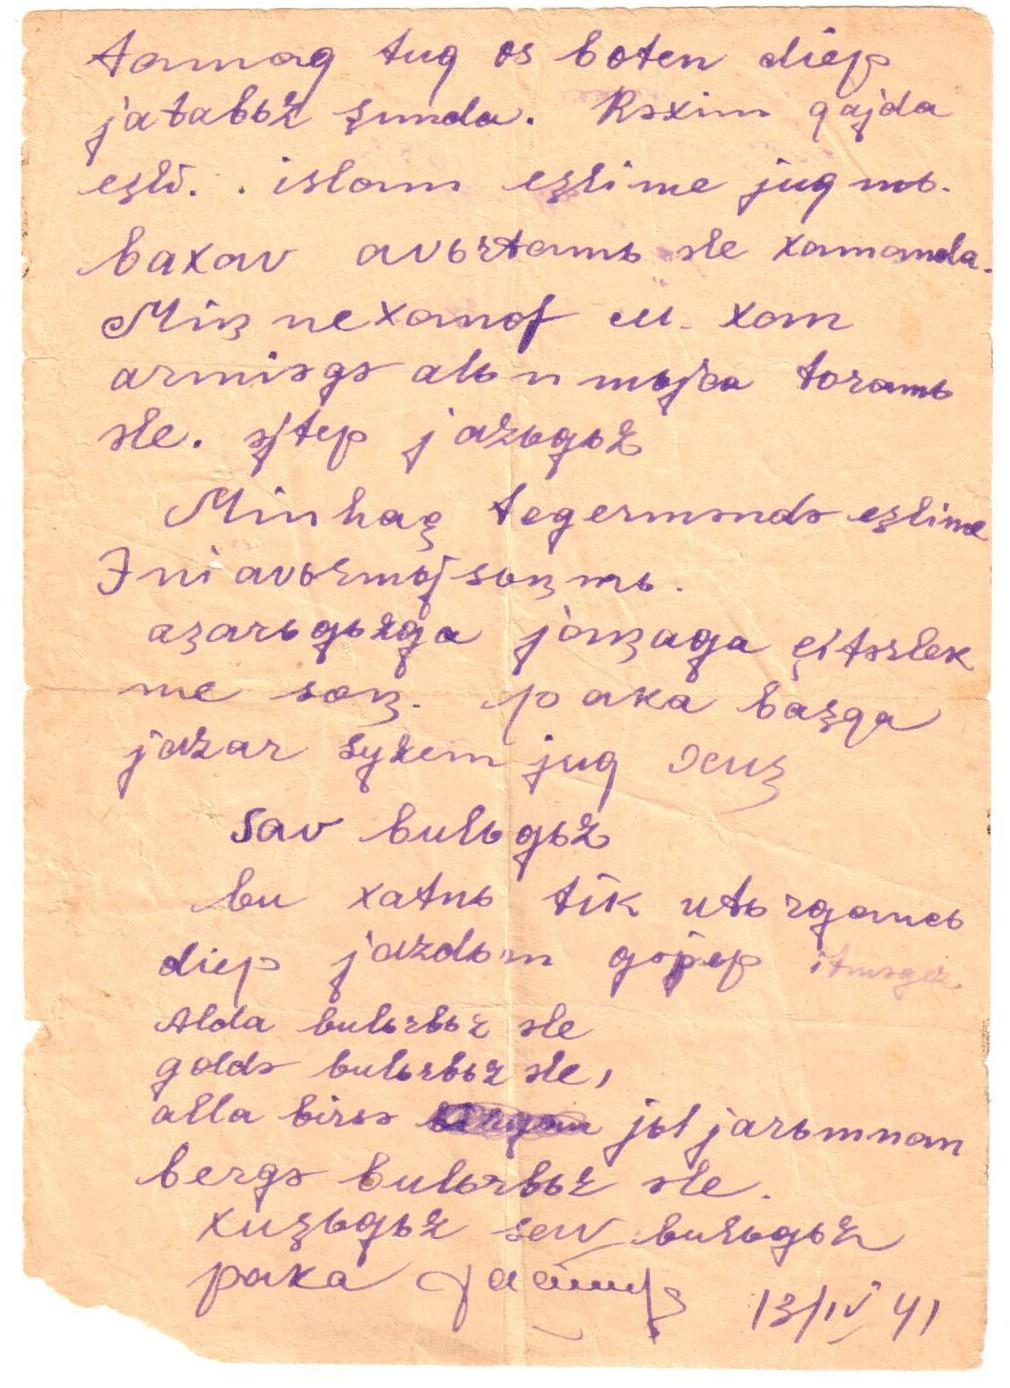 tamaq tuq əs bɵten diep
jatabьz şunda. Rəxim qajda
eşli. . islam eşlime juq mь.
baxav avьrtamь əle xamanda.
Miŋnexanof xam
armiəgə alьnmьjca toramь
əle. əjtep jazьgьz
Minhaç tegermənde eşlime
Ini avьrmьjsьŋmь.
açarьgьzga jaŋaga çitərlek
me soŋ. paka başqa
jazar syzem juq xuş
Sav bulьgьz
bu xatnь tik utьrgancь
diep jazdьm gəjep itməgez.
Alda bulьrbьz əle
gɵldə bulьrbьz əle,
alla birsə jɵl jarьmnan
bergə bulьrbьz əle.
xuşьgьz sav bulьgьz
paka
13/IV 41